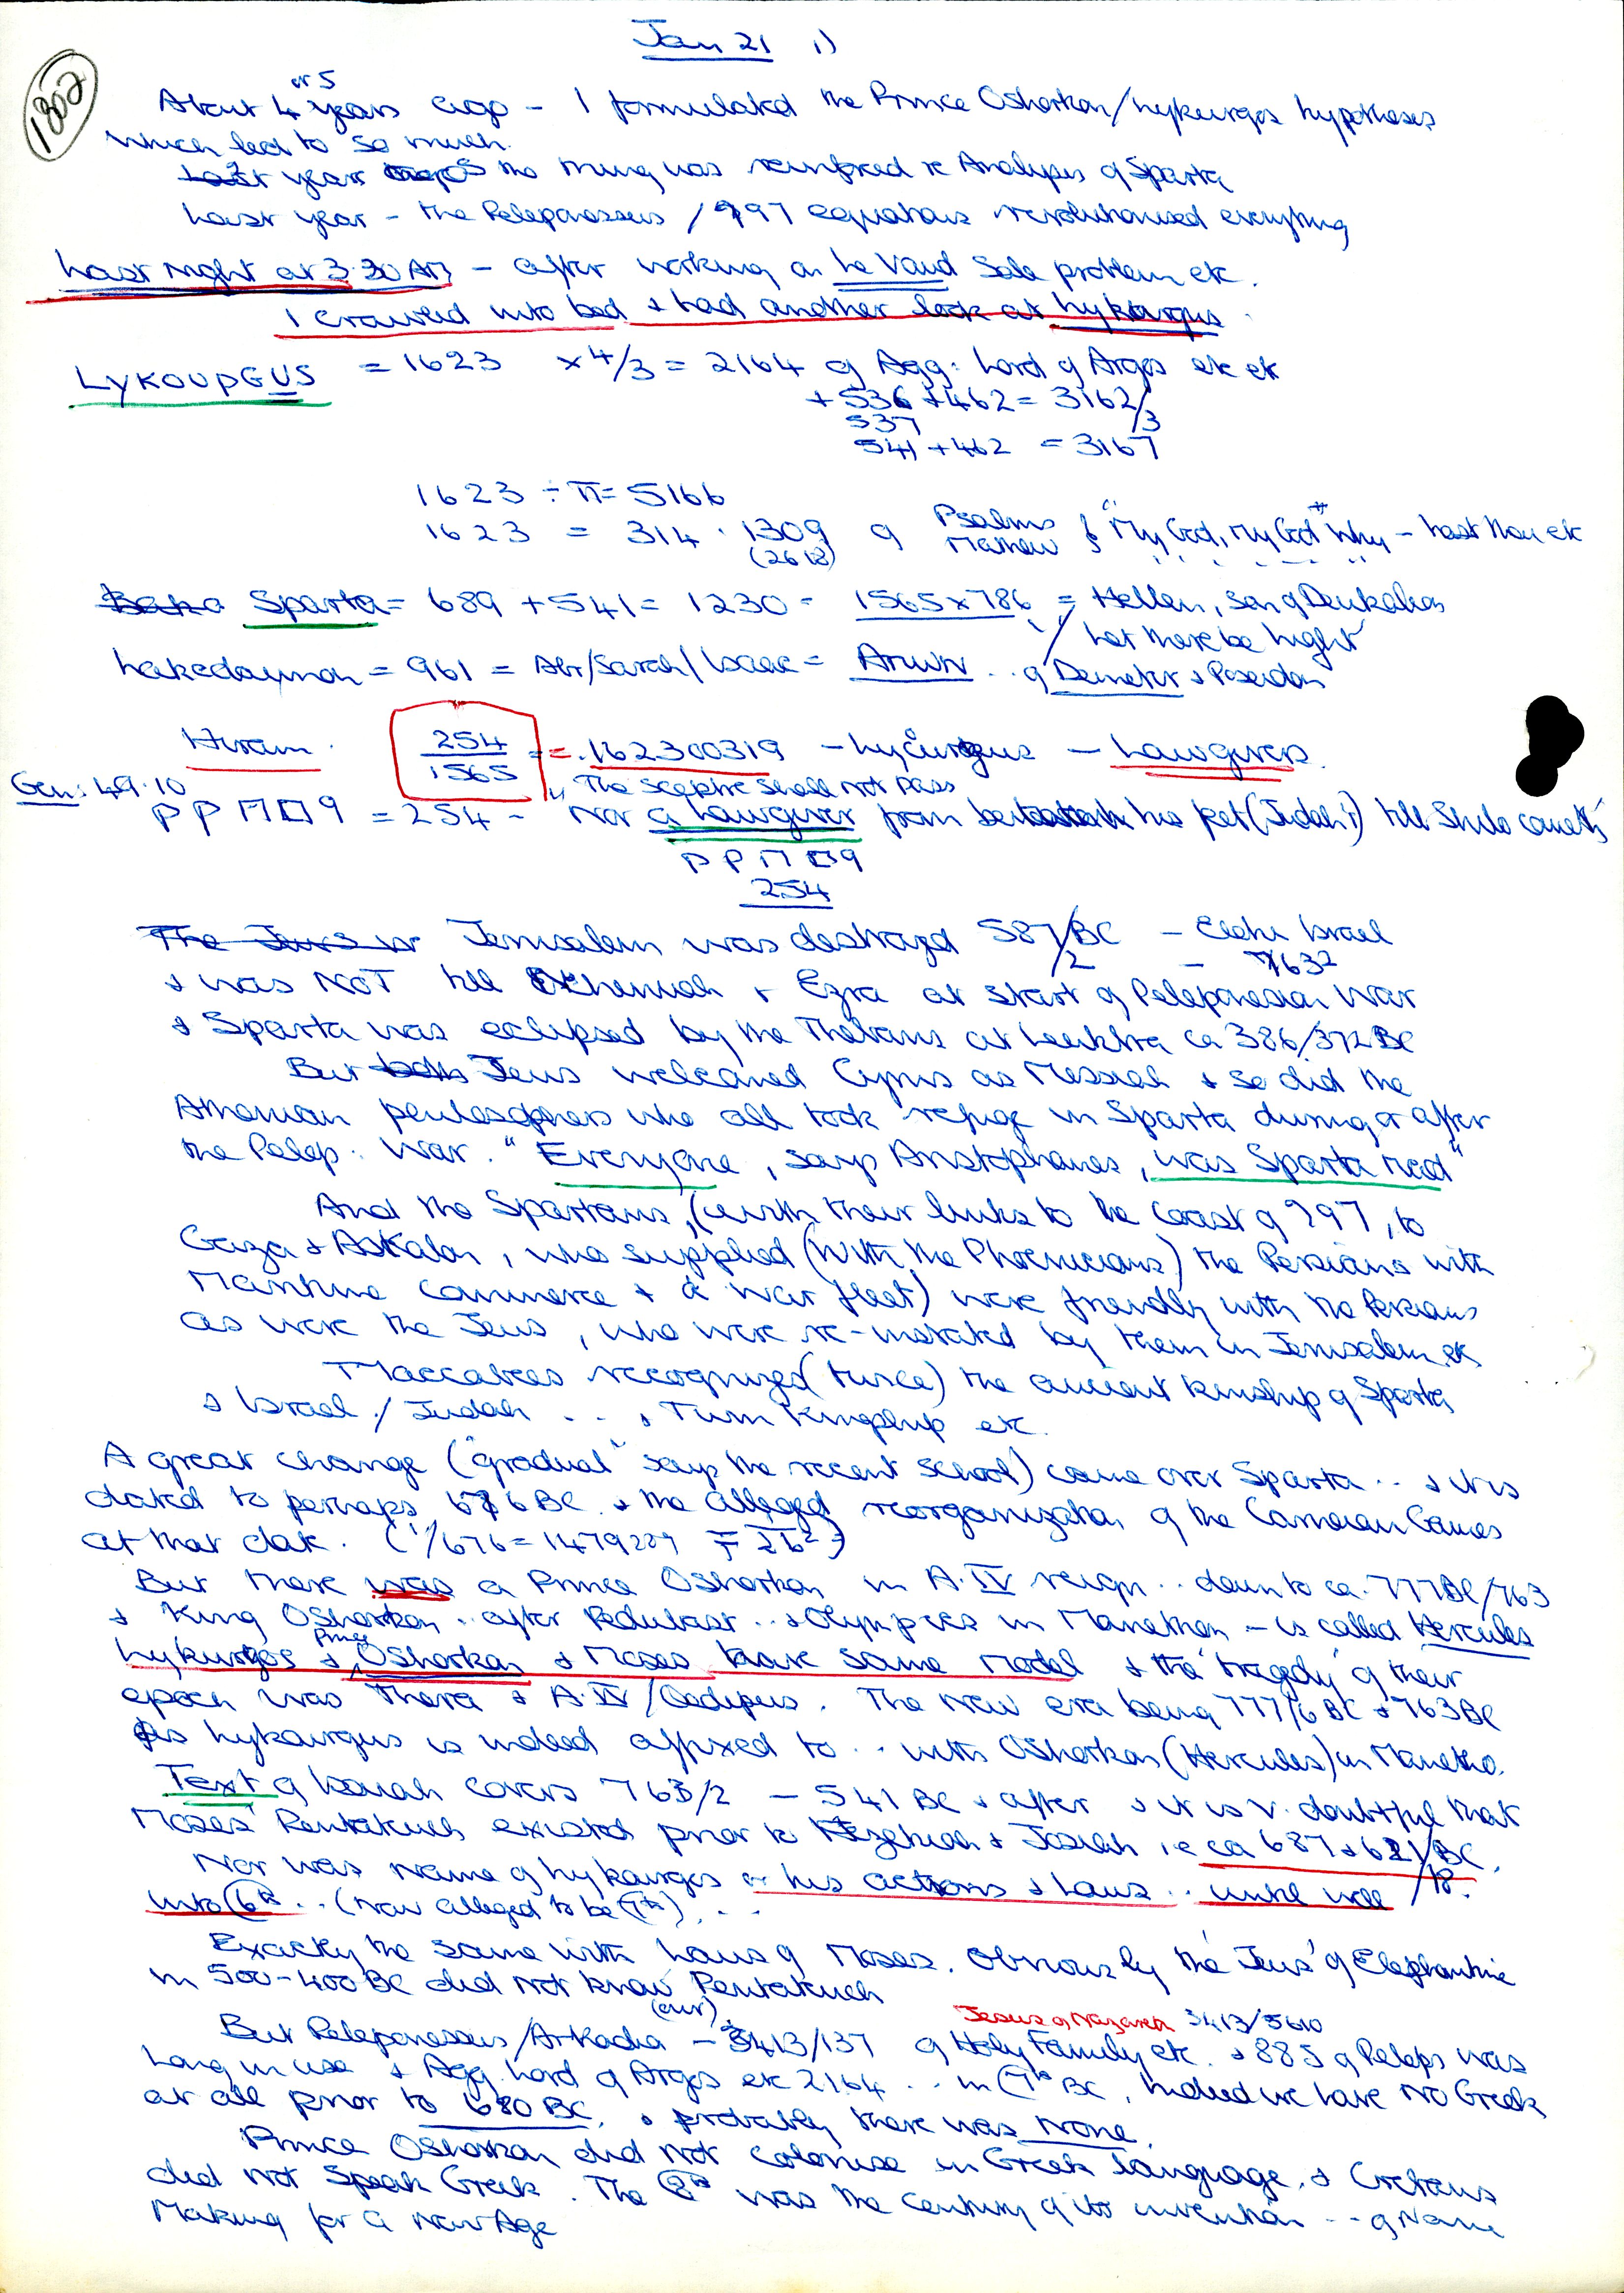 Jan 21 1)
1802
or 5
About 4 years ago - I formulated the Prince Oshorkan/Lykurgos hypotheses
which led to so much.
Last year the thing was reinforced re Analepes of Sparta
Last year - the Peleponessus / 997 equations revolutionised everything
Last night at 3.30 AM - after working on La Vaud Sale problem etc.
I crawled into bed & had another look at Lykurgus
LYKOUPGUS = 1623 x 4/3 = 2164 of Agg: Lord of Argos etc etc
+ 536 + 462 = 3162/3
537
541 + 462 = 3167
1623 ÷ π = 5166
1623 = 314 . 1309 of Psalms & Mathew "My God, My God Why - hast thou etc
(2618)
Sparta = 689 + 541 = 1230 = 1565 x 786 = Hellen, son of Deukalion
Let there be light
Lakedaymon = 961 = Abr/Sarah/Isaac = Arwn .. of Demeter & Poseidon
Hiram. 254/1565 = .162300319 - Lycurgus - Lawgivers.
Gen: 49.10
"The sceptre shall not pass
= 254 - Nor a Lawgiver from his feet (Judah) till Shilo cometh
254
Jerusalem was destroyed 587/2 BC - Elohi Israel
- 7632
& was NOT till Nehemiah & Ezra at start of Peleponesian War
& Sparta was eclipsed by the Thebans at Leuktra ca 386/372 BC
But Jews welcomed Cyrus as Messiah & so did the
Athenian philosophers who all took refuge in Sparta during or after
the Pelep: War. "Everyone, says Aristophanes, was Sparta mad"
And the Spartans, (with their links to the coast of 997, to
Gaza & Askalon, who supplied (with the Phoenicians) the Persians with
Maritime commerce & a war fleet) were friendly with the Persians
as were the Jews, who were re-instated by them in Jerusalem etc
Maccabees recognized (twice) the ancient kinship of Sparta
& Israel / Judah ... & Twin Kingship etc.
A great change ("gradual" says the recent school) came over Sparta .. & it is
dated to perhaps 676 BC & the alleged reorganization of the Carneian Games
at that date. (1/676 = 1479289
But there was a Prince Oshorkon in A.IV reign .. down to ca. 777 BC/763
& King Oshorkon .. after Pedubast .. & Olympics in Manethon - is called Hercules
Lykurgos & Prince Oshorkon & Moses have same model & the 'tragedy' of their
epoch was Thera & A.IV / Oedipus. The new era being 777/6 BC & 763 BC
As Lykurgus is indeed affixed to .. with Oshorkon (Hercules) in Manetho.
Text of Isaiah covers 763/2 - 541 BC & after & it is v. doubtful that
Moses' Pentateuch existed prior to Hezekiah & Josiah i.e ca 687 & 621/18 BC.
Nor was name of Lykurgos or his actions & Laws .. until well
into 6th .. (now alleged to be 7th) ...
Exactly the same with Laws of Moses. Obviously the 'Jews' of Elephantine
in 500-400 BC did not know Pentateuch
But Peleponessus/Arkadia (our) - 3413/137 of Holy Family etc. & 885 of Pelops was
Jesus of Nazareth 3413/5610
long in use & Agg. Lord of Argos etc 2164 .. in 7th BC, indeed we have no Greek
at all prior to 680 BC, & probably there was none.
Prince Oshorkon did not colonise in Greek language, & Cretans
did not speak Greek. The 8th was the century of its invention .. of Name
Making for a New Age